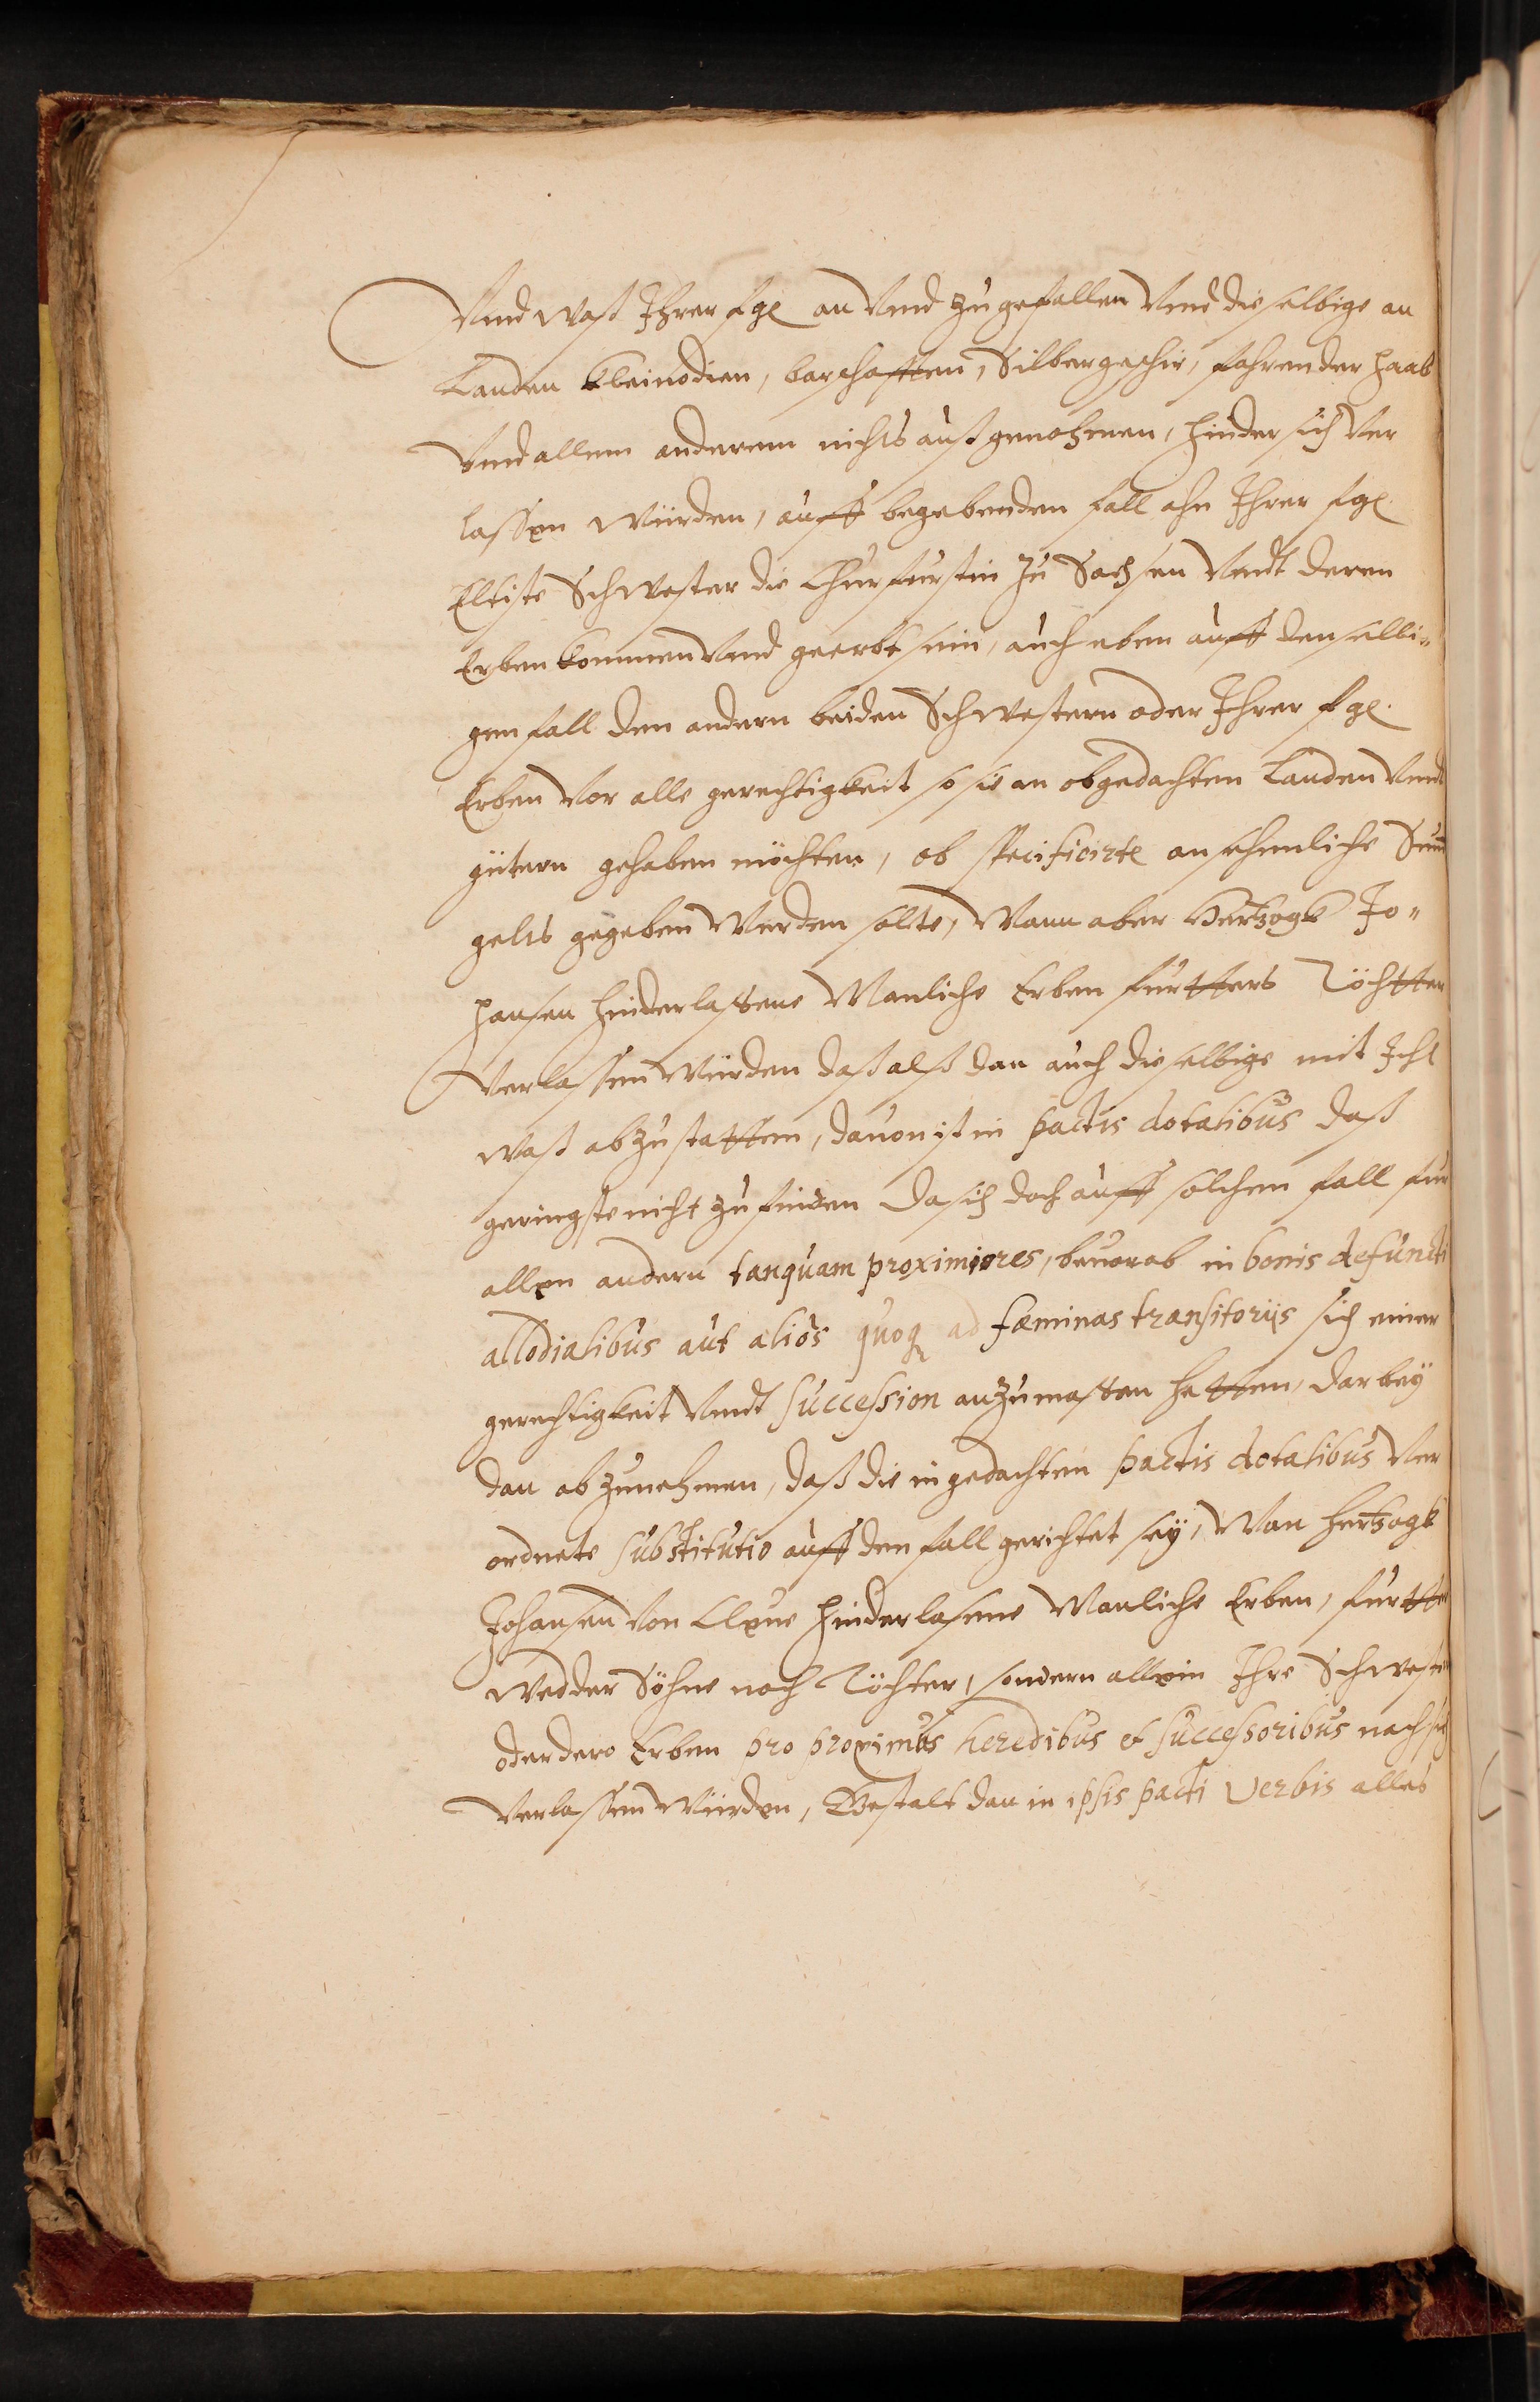 Vnd waß Ihrer fgl an Vnd zugefallen Vnd dieselbige an
Landen Kleinodien, barschafften, Silbergeschir, fahrender haab
Vnd allem anderem nichts außgenohmen, hindersich Ver
lassen würden, auff begebenden fall ahn Ihrer fgl.
Eltiste Schwester die Churfurstin zu Sachsen Vndt deren
Erben kommen Vnd geerbt sein, auch eben auff denselbi„
gen fall den andern beiden Schwestern oder Ihrer fgl.
Erben Vor alle gerechtigkeit so sie an obgedachten Landen Vndt
gütern gehaben möchten, ob specificirte ansehenliche Sum
gelts gegeben Werden solte, Wann aber Hertzogk Jo„
hansen hinderlassene Manliche Erben furtters Töchtter
Verlassen Würden daß alß dan auch dieselbige mit Icht
waß abzustatten, dauon ist in pactis dotalibus daß
geringste nicht zufinden Da sich doch auff solchem fall fur
allen andern tanquam proximiores, beuorab in bonis defuncti
allodialibus aut alios quoq ad fæminas transitorijs sich einer
gerechtigkeit Vndt Succession anzumassen hetten, darbey
dan abzunehmen, daß die in gedachten pactis dotalibus Ver
ordnete Substitutio auff den fall gerichtet sey, Wan Hertzogk
Johansen Von Cleue hinderlasene Manliche Erben, furtter
Wedder Söhne noch Töchter, sondern allein Ihre Schwester
oder dero Erben pro proximus heredibus et successoribus nach sich
Verlassen Würden, Gestalt dan in ipsis pacti Verbis alles